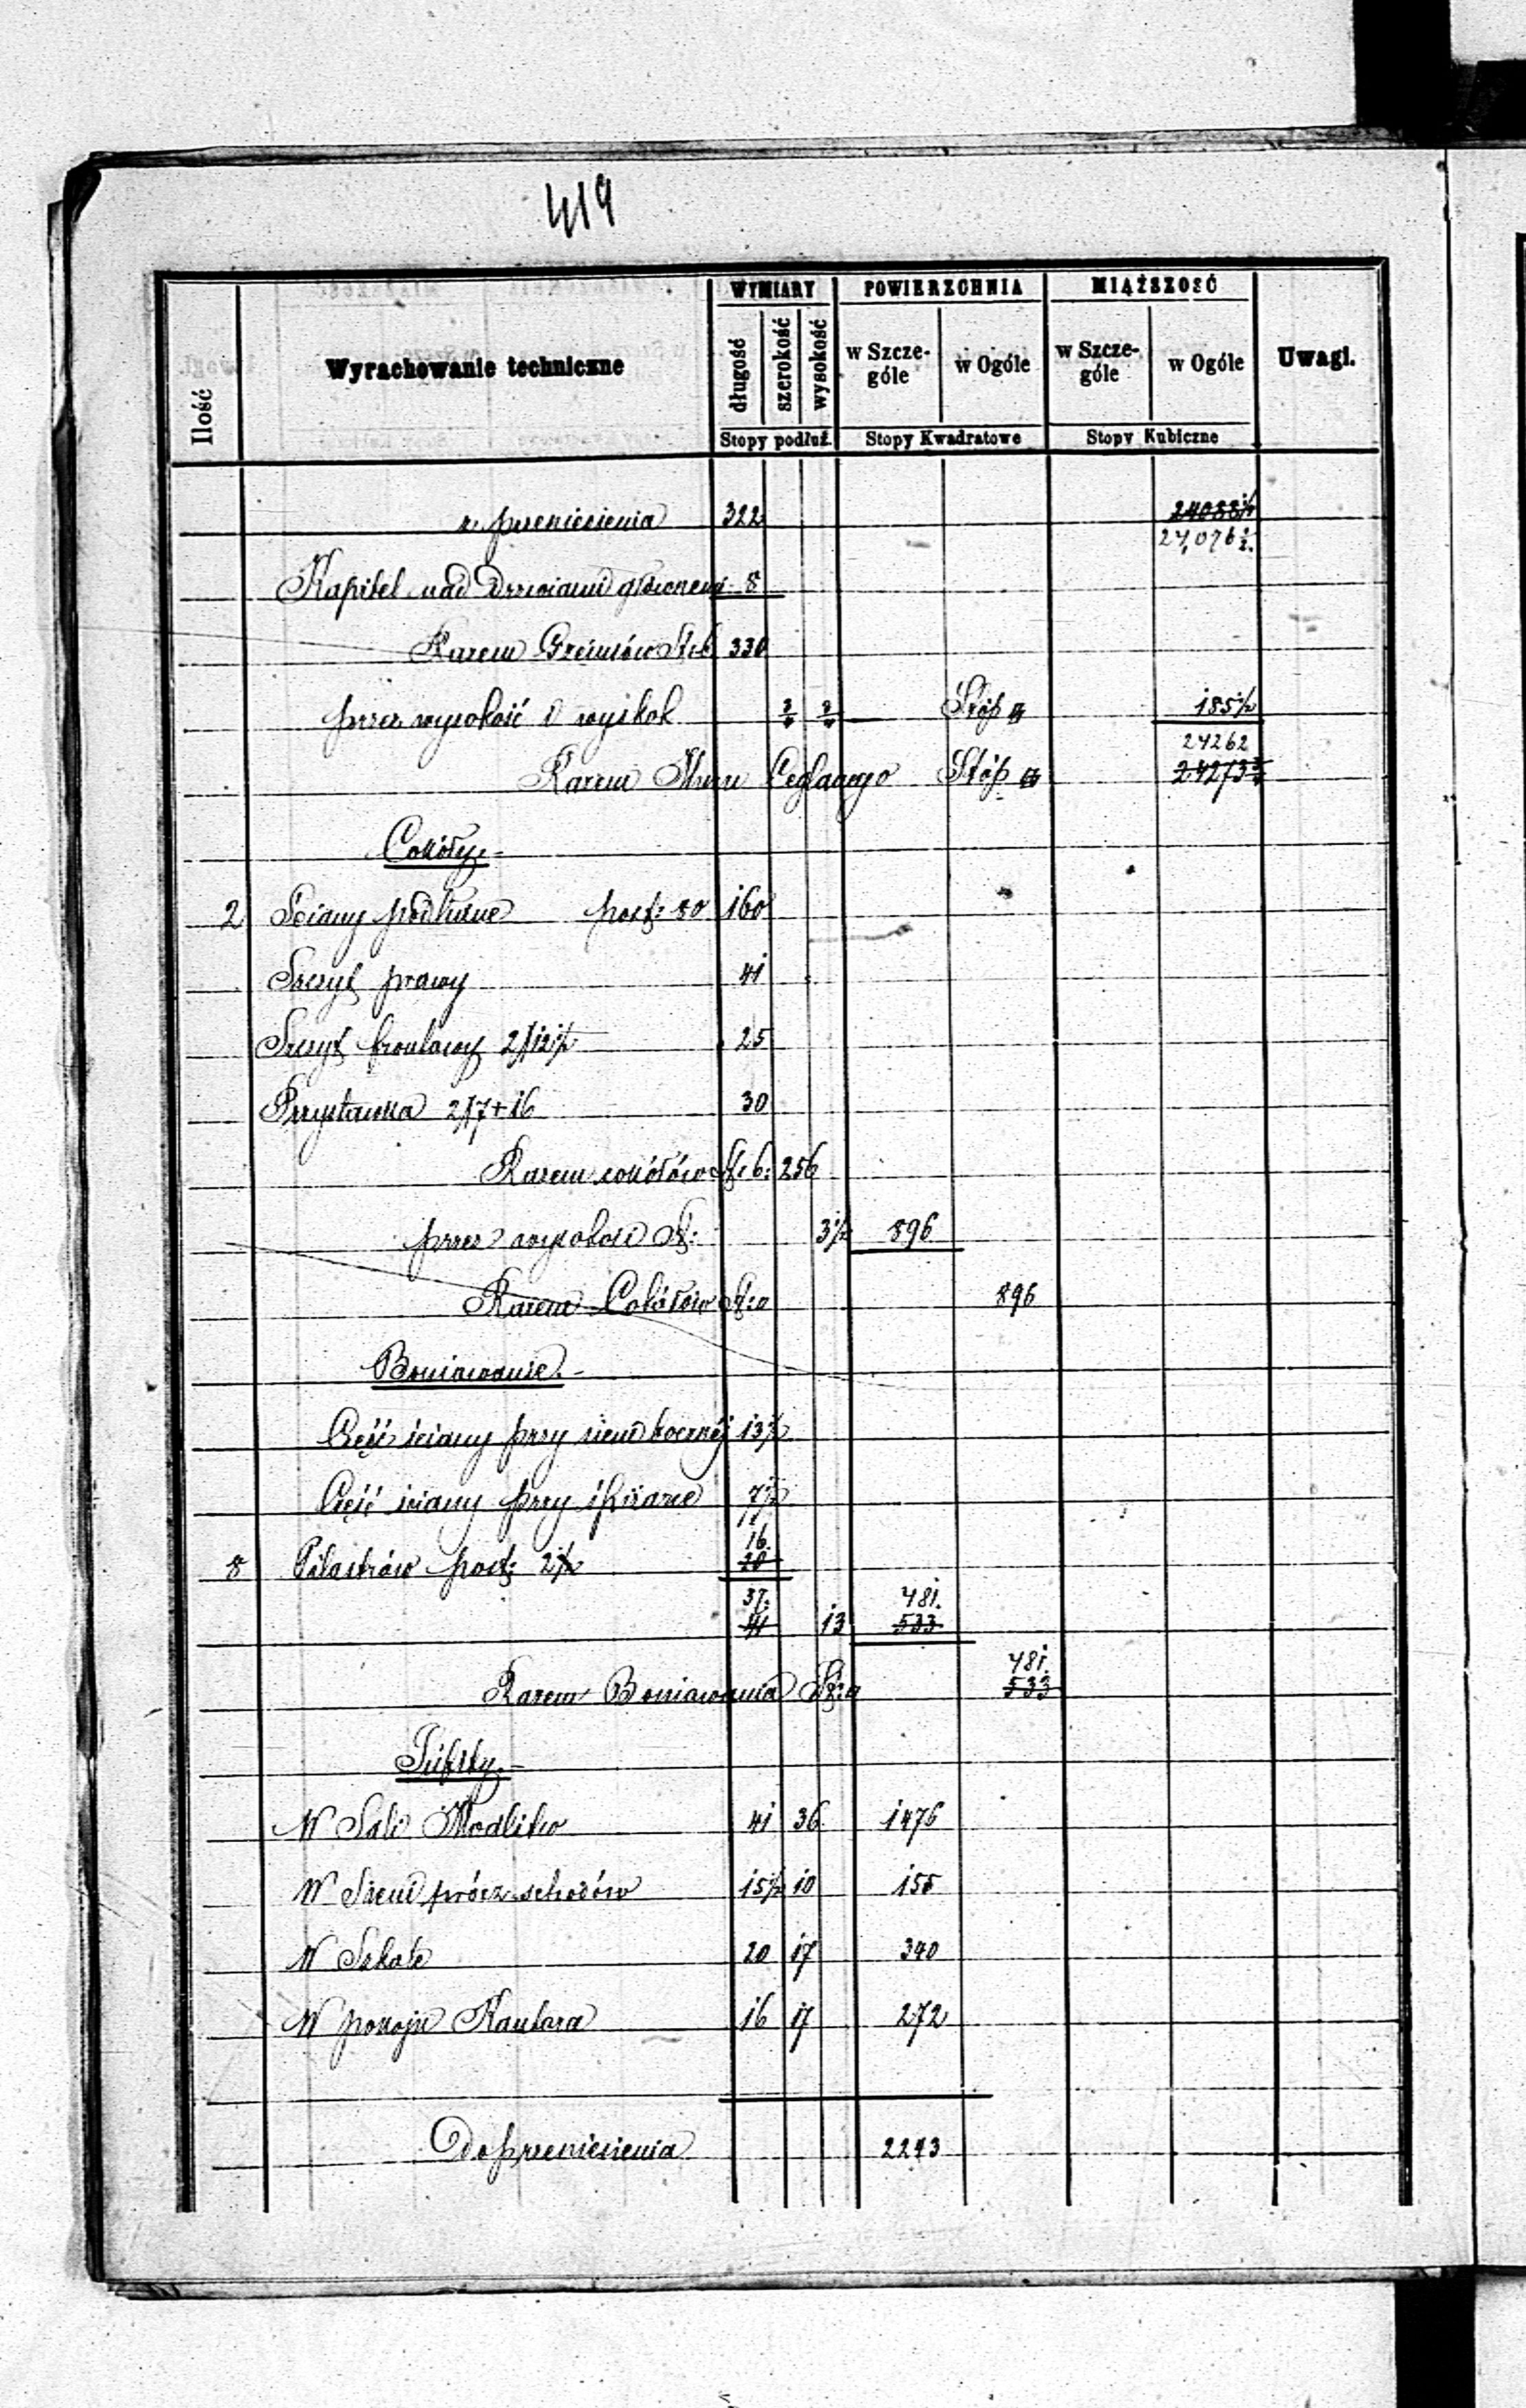 419
Ilość
Wyrachowanie techniczne
WYMIARY
długość
szerokość
wysokość
Stopy podłuż.
POWIERZCHNIA
w Szcze-
góle
w Ogóle
Stopy Kwadratowe
MIĄŻSZOŚĆ
w Szcze-
góle
w Ogóle
Stopy Kubiczne
Uwagi.
z przeniesienia 322 24088½
24,076½.
Kapitel nad drzwiami głównemi 8
Razem Gzémsów St b 330
przez wysokość i wyskok ¾ ¾ Stóp 185½
24262
Razem Muru Ceglanego Stóp 24273¾
Cokóły.
2 Ściany podłużne post: 80 160
Szczyt prawy 41
Szczyt frontowy 2/12½ 25
Przystawka 2/7+16 30
Razem cokółów St b: 256
przez wysokość St: 3½ 896
Razem Cokółów St: 896
Boniowanie.
Część ściany przy sieni bocznéj 13½
Część ściany przy spiżarce 7½
16.
8 Pilastrów post: 2½ 20
37. 481.
41 13 533
481.
Razem Boniowania St: 533
Sufity.
W Sali Modlitw 41 36 1476
W Sieni prócz schodów 15½ 10 155
W Szkole 20 17 340
W pokoju Kantora 16 17 272
Do przeniesienia 2243